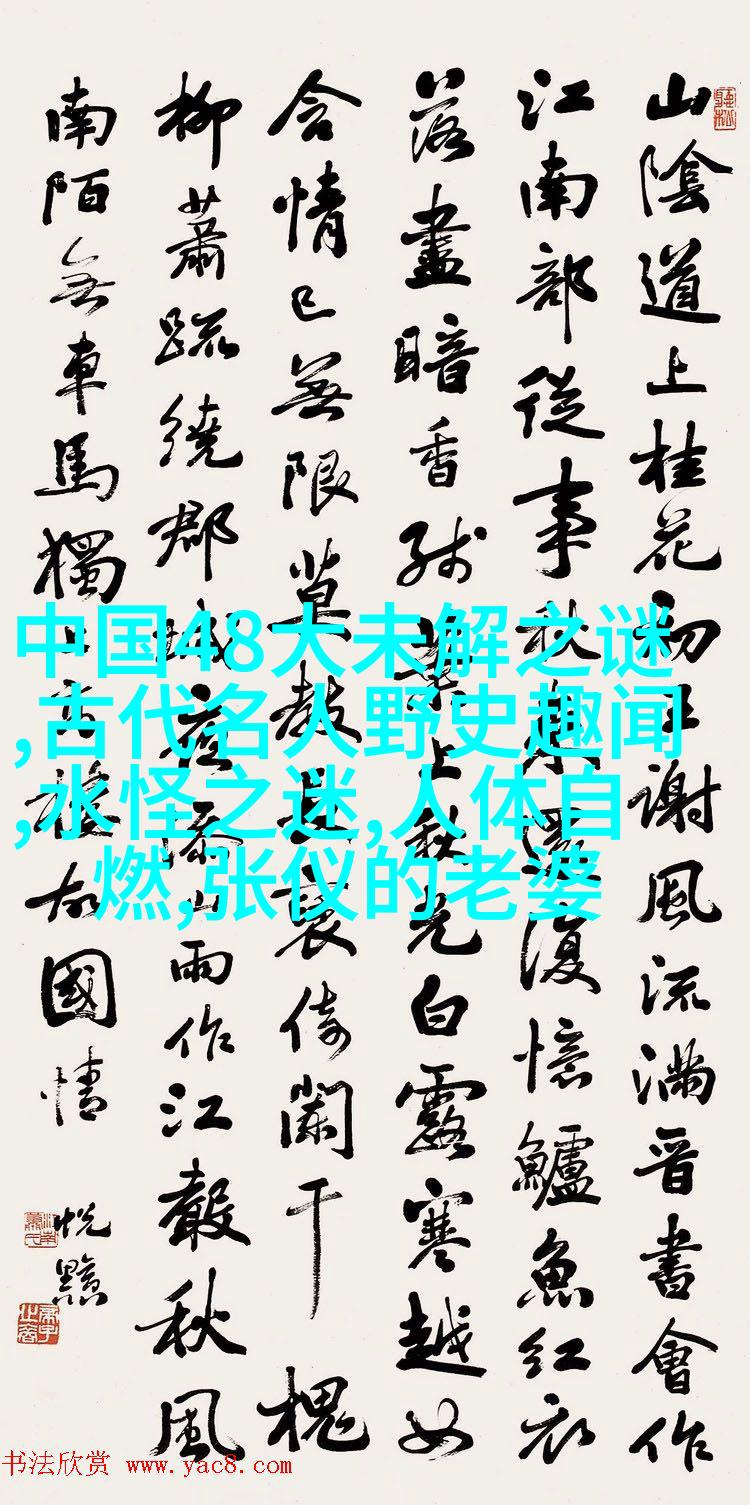 山陰道上桂花初王謝風流滿晉書會作
江南部從事秋還復憶鱸魚紅衣
落盡暗香殘葉上秋光白露寒越女
含情已無限莫教長袖倚闌干槐
柳蕭疏繞郡城夜添山雨作江聲秋風
南陌無車馬獨上高樓故國情
中国48大未解之谜
,古代名人野史趣闻
,水怪之谜,人体自
燃,张仪的老婆
书法欣赏 www.yac8.com